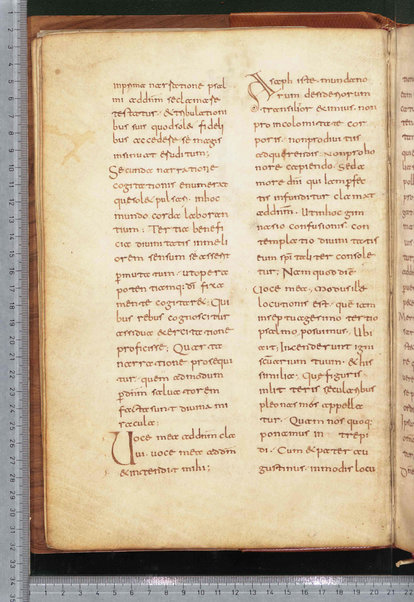 inprima narratione psal
mi ad dnm se clamasse
testatur & tribulationi
bus suis quod solet fideli
bus accedere se magis
insinuat eruditum;
Secunda narratione
cogitationis enumerat
que solet pulsari inhoc
mundo corda laboran
tium; Tertia benefi
cia divinitatis in meli
orem sensum se asserit
permutatum ut opera
potentiam qui di fixa
mente cogitaret; Qui
bus rebus cognoscitur
assidua exercitatione
proficisse; Quarta
narratione prosequi
tur quemadmodum
per dnm salvatorem
facta sunt divina mi
racula;
Voce mea ad dnm cla
vi. voce mea ad dnm
& intendit mihi;
Asaph iste mundano
rum desideriorum
transilitor eximius. non
pro incolomitate cor
poris. non pro divitiis
adquirendis. Non pro ho
nore capiendo. Sed a
more dni qui se perfec
tis infunditur clamat
ad dnm. Ut in hoc gim
nasio confusionis. con
templatio divinitatis
eum spitaliter console
tur; Nam quod dicit
Voce mea, Modus ille
locutionis est. que iam
in septuagensimo tertio
psalmo posuimus. Ubi
ait; Incenderunt igni
scuarium tuum. & his
similia. Que figuris
mili teris secularibus
pleonasmos appella
tur. Quam nos quoq;
ponamus in trepi
di. Cum & pater au
gustinus in modis locu